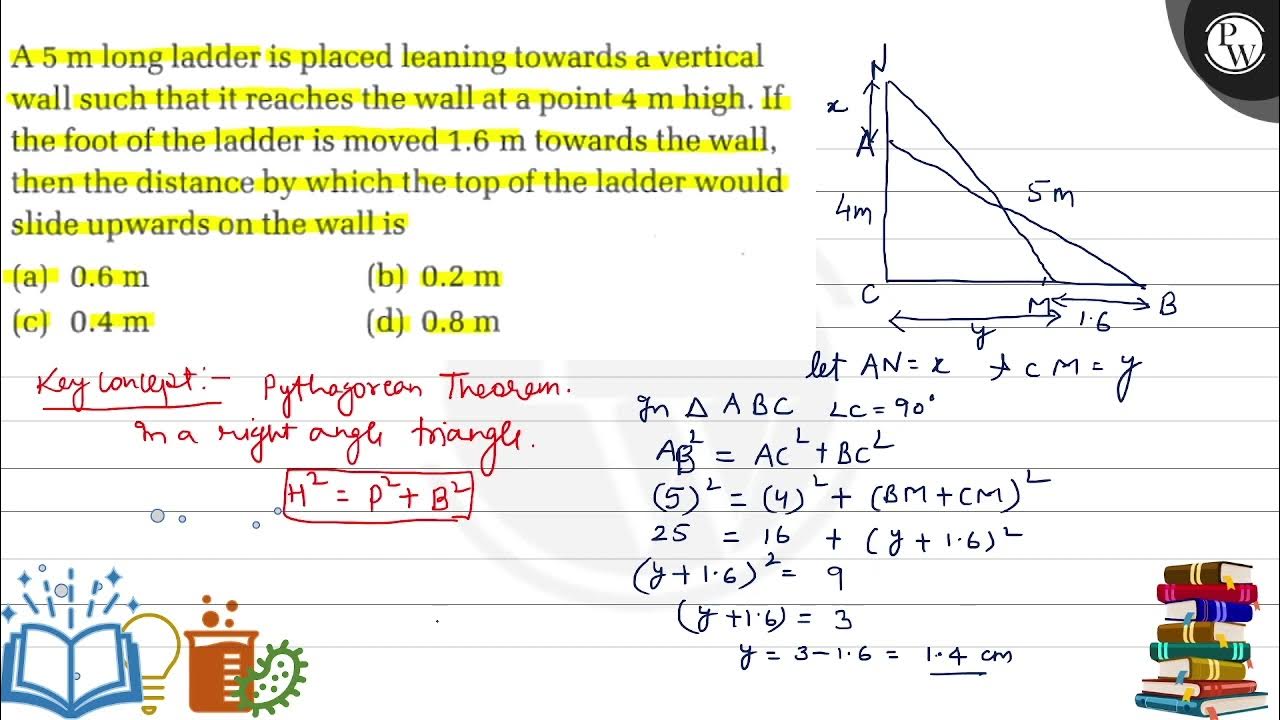 A 5 m long ladder is placed leaning towards a vertical
wall such that it reaches the wall at a point 4 m high. If
the foot of the ladder is moved 1.6 m towards the wall,
then the distance by which the top of the ladder would
slide upwards on the wall is
(a) 0.6 m (b) 0.2 m
(c) 0.4 m (d) 0.8 m
Key Concept:- Pythagorean Theorem.
In a right angle triangle.
H² = P² + B²
PW
N
x
A
4m
5m
C
M
B
1.6
y
let AN = x & CM = y
In Δ ABC ∠C = 90°
AB² = AC² + BC²
(5)² = (4)² + (BM + CM)²
25 = 16 + (y + 1.6)²
(y + 1.6)² = 9
(y + 1.6) = 3
y = 3 - 1.6 = 1.4 cm